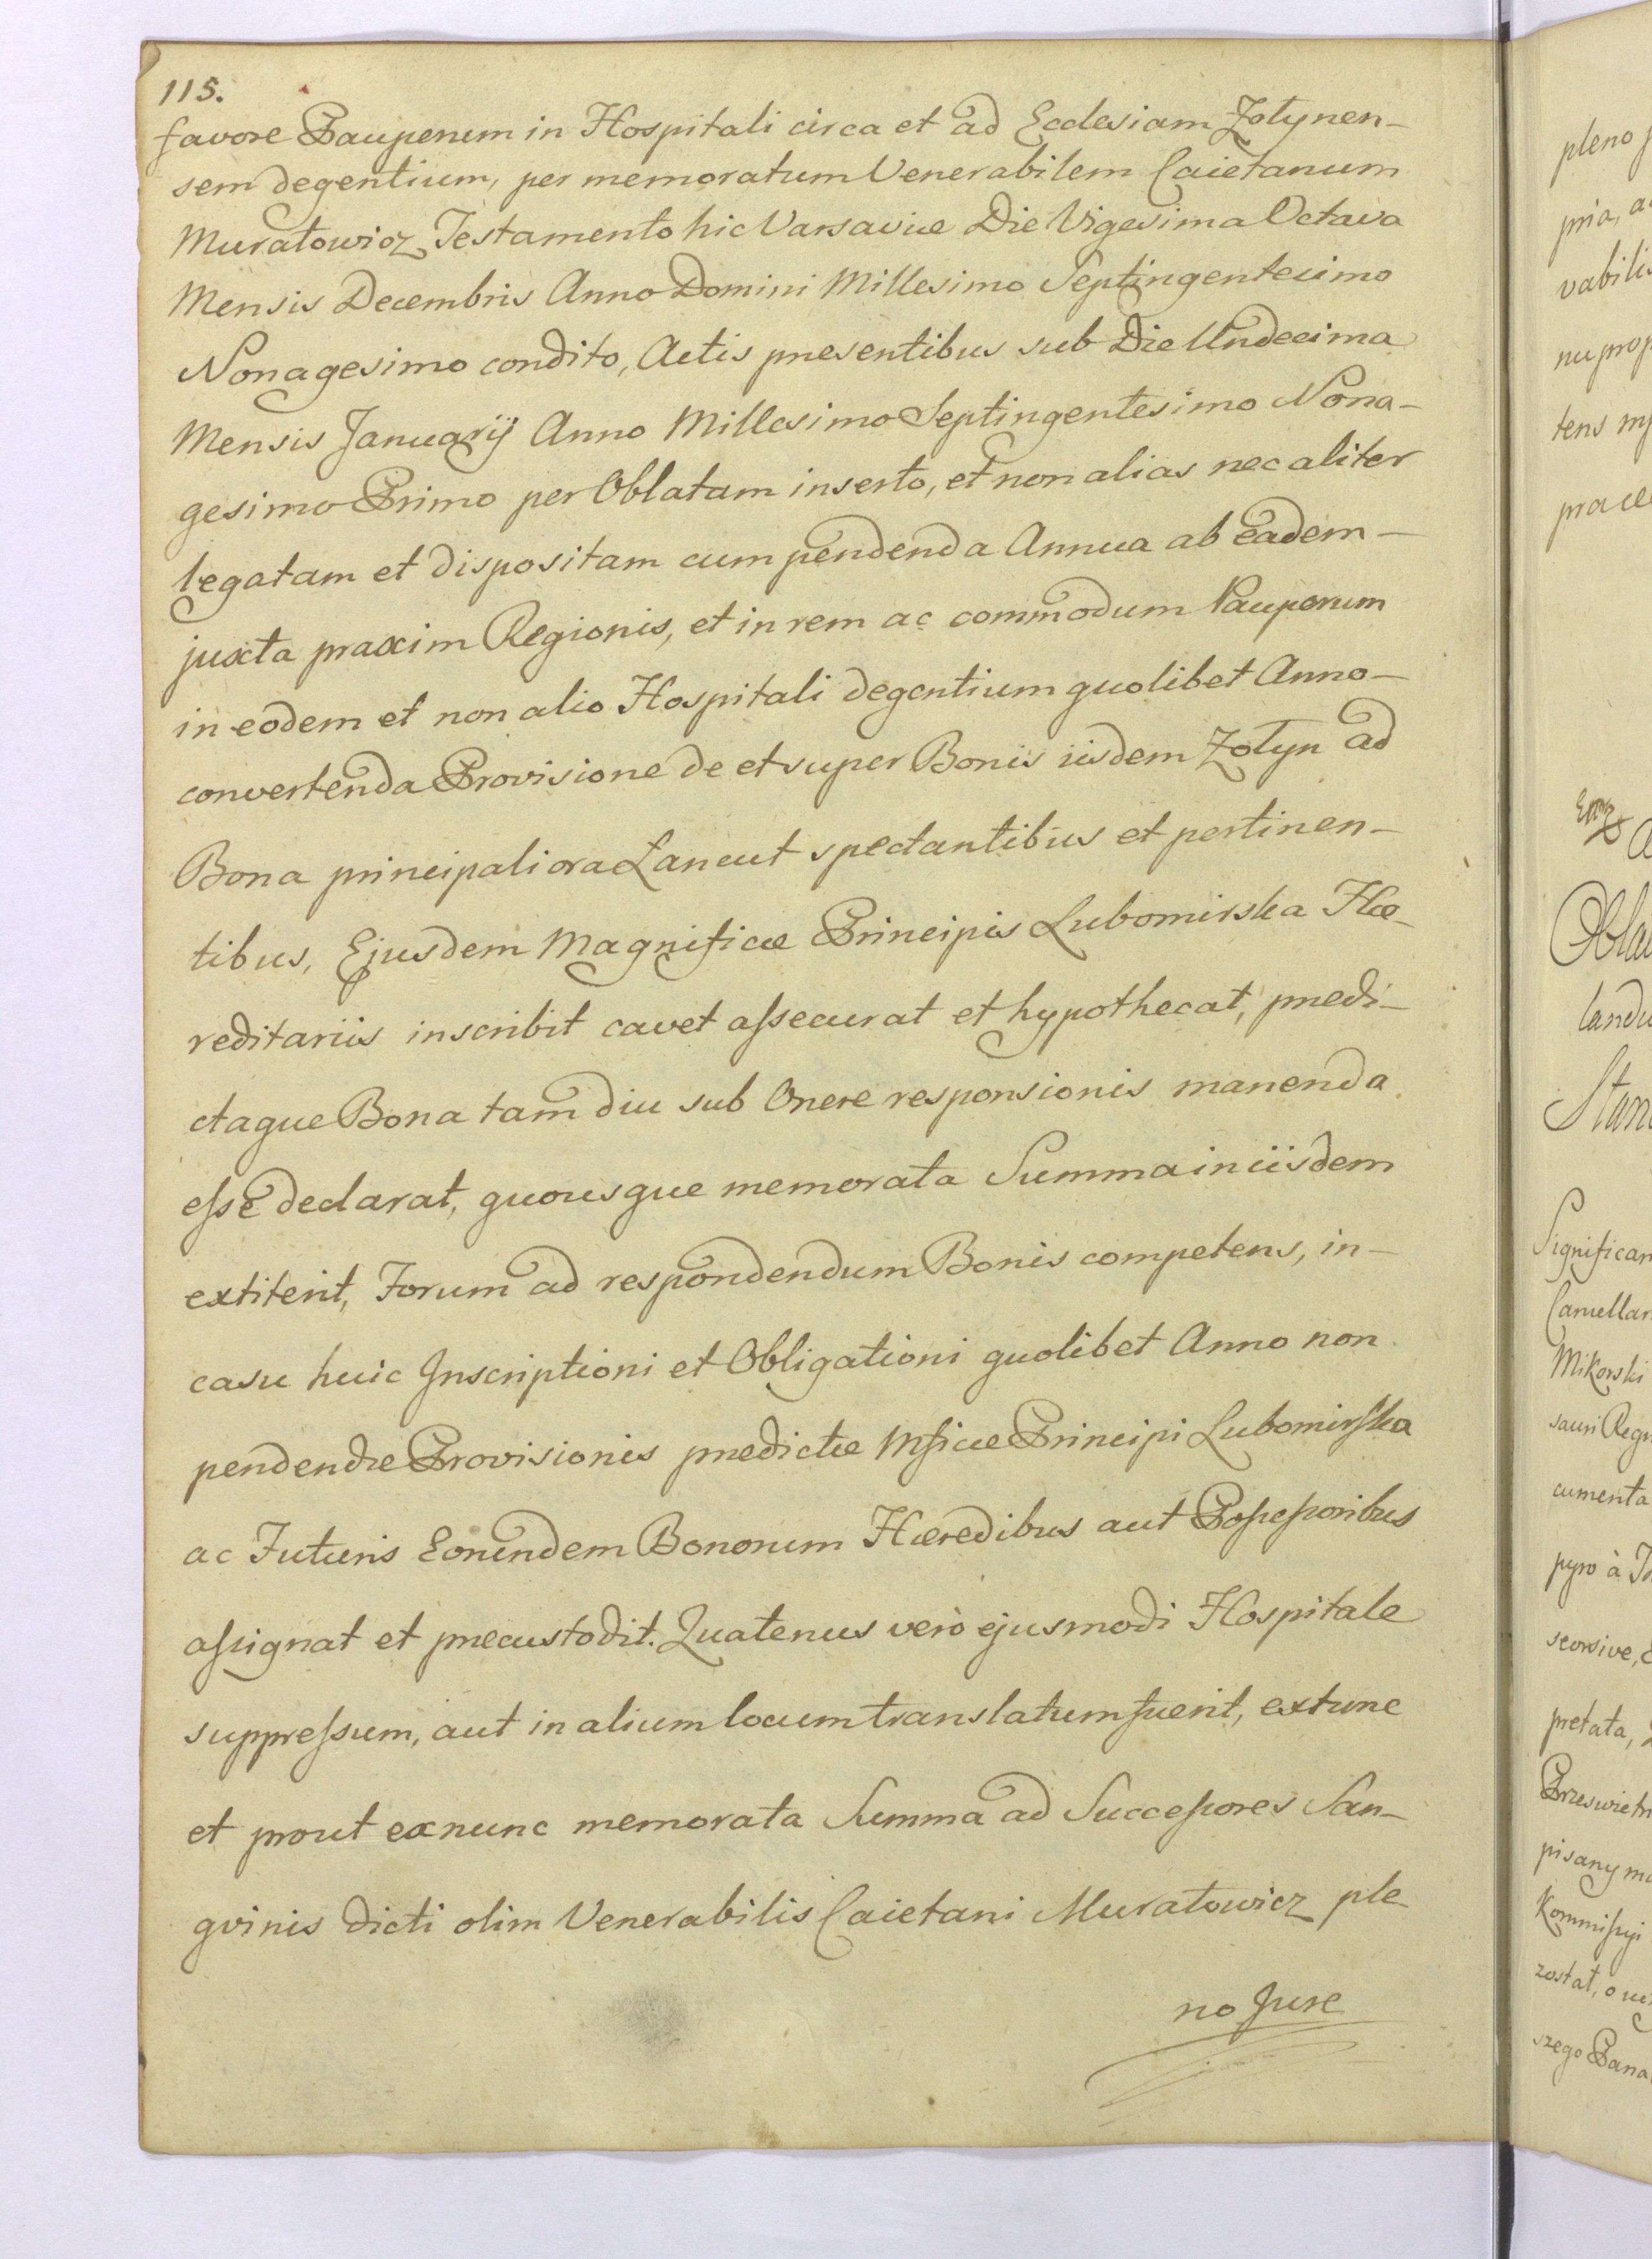 115.
favore Pauperum in Hospitali circa et ad Ecclesiam Zołynen-
sem degentium, per memoratum Venerabilem Caietanum
Muratowicz Testamento hic Varsaviæ Die Vigesima Octava
Mensis Decembris Anno Domini Millesimo Septingentesimo
Nonagesimo condito, Actis præsentibus sub Die Undecima
Mensis Januarij Anno Millesimo Septingentesimo Nona-
gesimo Primo per Oblatam inserto, et non alias nec aliter
legatam et dispositam cum pendenda Annua ab eadem-
juxta praxim Regionis, et in rem ac commodum Pauperum
in eodem et non alio Hospitali degentium quolibet Anno-
convertenda Provisione de et super Bonis iisdem Zołyn ad
Bona principaliora Łancut spectantibus et pertinen-
tibus, Ejusdem Magnificæ Principis Lubomirska Hæ-
reditariis inscribit cavet assecurat et hypothecat, prædi-
ctaque Bona tam diu sub Onere responsionis manenda
esse declarat, quousque memorata Summa in iisdem
extiterit, Forum ad respondendum Bonis competens, in-
casu huic Inscriptioni et Obligationi quolibet Anno non
pendendæ Provisionis prædictæ Mficæ Principi Lubomirska
ac Futuris Eorundem Bonorum Hæredibus aut Possessoribus
assignat et præcustodit. Quatenus verò ejusmodi Hospitale
suppressum, aut in alium locum translatum fuerit, extunc
et prout exnunc memorata Summa ad Successores San-
gvinis dicti olim Venerabilis Caietani Muratowicz ple-
no Jure
pleno
pria,
vabilis
tens
Obla
Stan
Significan
Mikorski
sauri Regn
cumenta
pyro à
seorsive,
pretata,
Przeswietn
pisany
Kommissyi
został, o
szego Pana